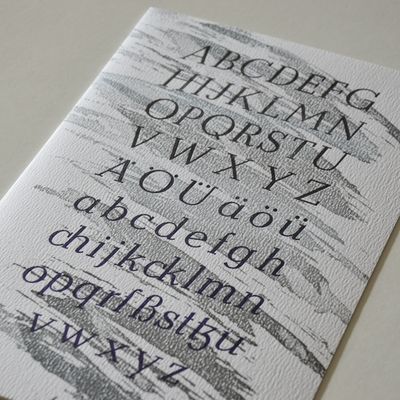 ABCDEFG
HIJKLMN
OPQRSTU
VWXYZ
ÄÖÜäöü
abcdefgh
chijkcklmn
opqrſßstꜩu
vwxyz